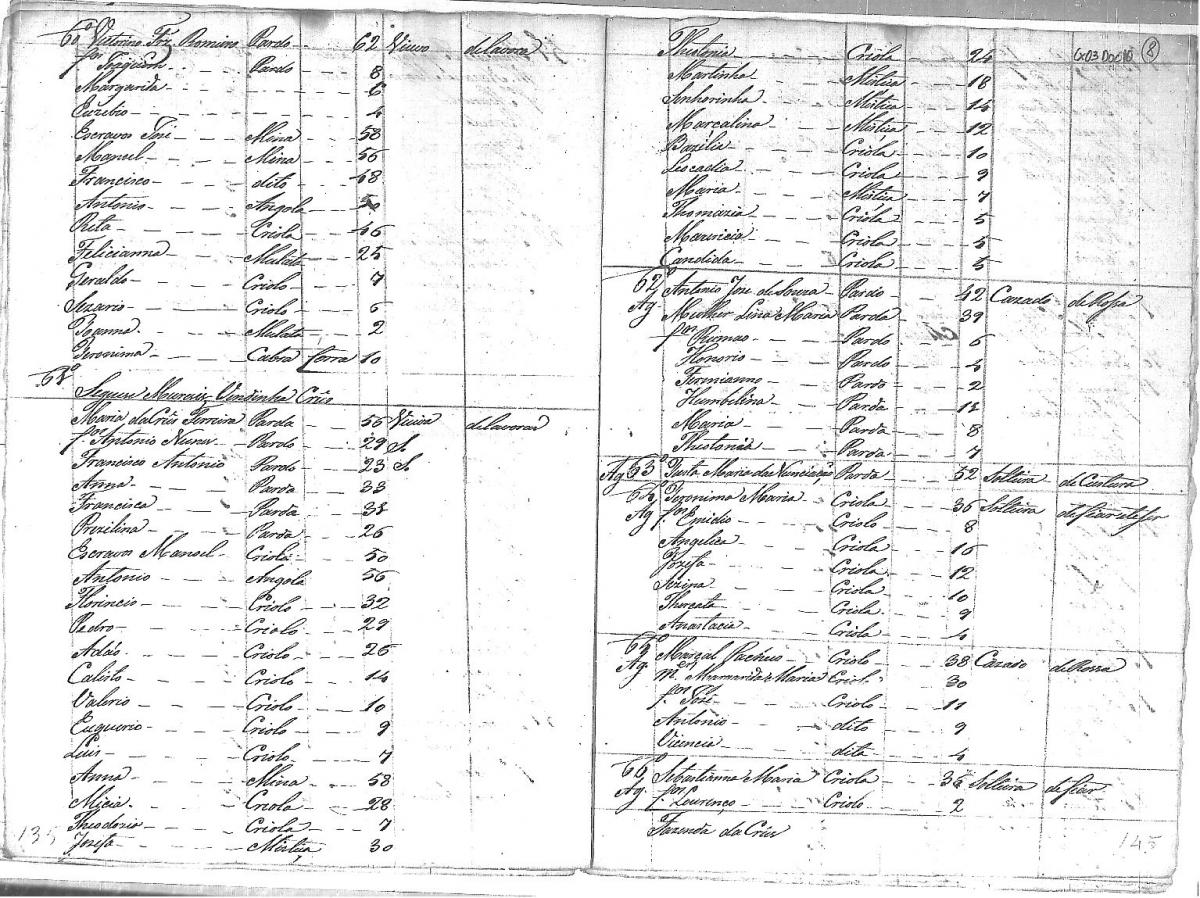 60º Vitorino Frz Romino Pardo 62 Viuvo de lavora
fos Pardo 8
Margarida 6
Euzebio 4
Escravos José Mina 58
Manoel Mina 56
Francisco dito 48
Antonio Angola
Rita Criola 46
Felicianna Mulata 25
Geraldo Criolo 7
Sezario Criolo 6
Joanna Mulata 2
Jeronima Cabra forra 10
61º
Maria da Crûs Ferreira Parda 56 Viuva de lavoras
fos Antonio Nunes Pardo 29 S
Francisco Antonio Pardo 23 S
Anna Parda 33
Francisca Parda
Prezilina Parda 26
Escravos Manoel Criolo 50
Antonio Angola 56
Florincio Criolo 32
Pedro Criolo 29
Adão Criolo 26
Calisto Criolo 14
Valerio Criolo 10
Euquerio Criolo 9
Luis Criolo 7
Anna Mina 58
Micia Criola 28
Theodozio Criola 7
Jozefa Mistiça 30
135
Cx03 Doc10 8
Thiotonia Criola 24
Martinha Mistiça 18
Senhorinha Mistiça 14
Marcalina Mistiça 12
Bazilia Criola 10
Leocadia Criola 9
Maria Mistiça 7
Thomazia Criola 5
Mauricia Criola 5
Candida Criola 5
62º Antonio José de Souza Pardo 42 Cazado de Rossa
Ag Mulher Lina Maria Parda 39
fos Romao Pardo 6
Honorio Pardo 4
Fermianno Pardo 2
Humbilina Parda 12
Maria Parda 8
Thiotonia Parda 7
Ag 63º Maria da Parda 52 Solteira de Custura
64º Jeronima Maria Criola 36 Solteira
Ag fos Emidio Criolo 8
Angelica Criola 16
Jozefa Criola 12
Criola 10
Criola 9
Anastacia Criola 4
65º Marçal Pacheco Criolo 38 Cazado de Rossa
Ag. Mer Margarida Maria Criola 30
fos José Criolo 11
Antonio dito 9
Vicencia dita 4
66º Sebastianna Maria Criola 36 Solteira de fiar
Ag. fos Lourenço Criolo 2
Fazenda da Crûs
145